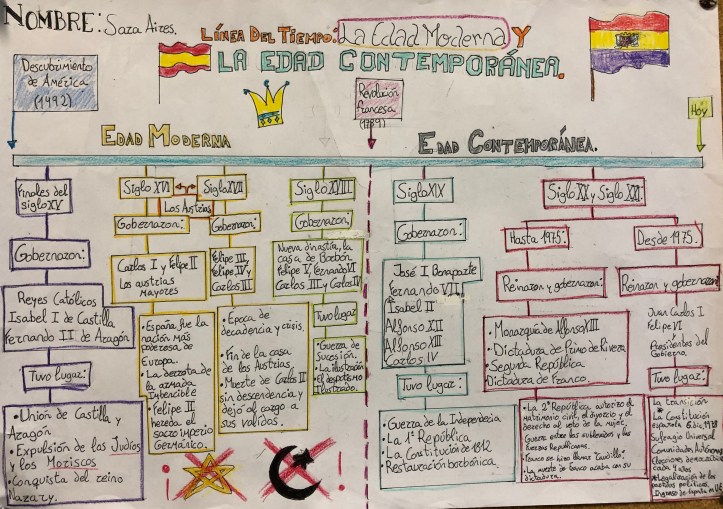 NOMBRE: Sara Aires.
LÍNEA DEL TIEMPO: La Edad Moderna Y
LA EDAD CONTEMPORÁNEA.
Descubrimiento
de América
(1492)
Revolución
francesa
(1789)
Hoy
EDAD MODERNA
EDAD CONTEMPORÁNEA.
Finales del
siglo XV
Gobernaron:
Reyes Católicos
Isabel I de Castilla
Fernando II de Aragón
Tuvo lugar:
• Unión de Castilla y
Aragón
• Expulsión de los Judíos
y los Moriscos
• Conquista del reino
Nazarí.
Siglo XVI
Siglo XVII
Los Austrias
Gobernaron:
Carlos I y Felipe II
Los austrias
Mayores
• España fue la
nación más
poderosa de
Europa.
• La derrota de la
armada
Invencible
• Felipe II
hereda el
sacro imperio
Germánico.
Gobernaron:
Felipe III,
Felipe IV y
Carlos III
• Época de
decadencia y crisis.
• Fin de la casa
de los Austrias.
• Muerte de Carlos II
sin descendencia y
dejó al cargo a
sus validos.
Siglo XVIII
Gobernaron:
Nueva dinastía, la
casa de Borbón
Felipe V, Fernando VI
Carlos III y Carlos IV
Tuvo lugar
• Guerra de
Sucesión.
• La ilustración
• El despotismo
Ilustrado.
Siglo XIX
Gobernaron:
José I Bonaparte
Fernando VII
Isabel II
Alfonso XII
Alfonso XIII
Carlos IV
Tuvo lugar:
• Guerra de la Independecia
• La 1ª República
• La Constitución de 1812
• Restauración borbónica.
Siglo XX y Siglo XXI.
Hasta 1975:
Reinaron y gobernaron:
• Monarquía de Alfonso XIII
• Dictadura de Primo de Rivera
• Segunda República
Dictadura de Franco.
• La 2ª República autorizo el
matrimonio civil, el divorcio y el
derecho al voto de la mujer.
Guerra entre los sublevados y las
fuerzas Republicanas.
• Franco se hizo llamar "Caudillo"
• La muerte de franco acaba con su
dictadura.
Desde 1975.
Reinaron y gobernaron:
Juan Carlos I
Felipe VI
Presidentes del
Gobierno.
Tuvo lugar:
La transición
• La Constitución
española 6 dic, 1978
Sufragio Universal
Comunidades Autónomas
Elecciones democráticas
cada 4 años
• Legalización de los
partidos políticos.
Ingreso de España